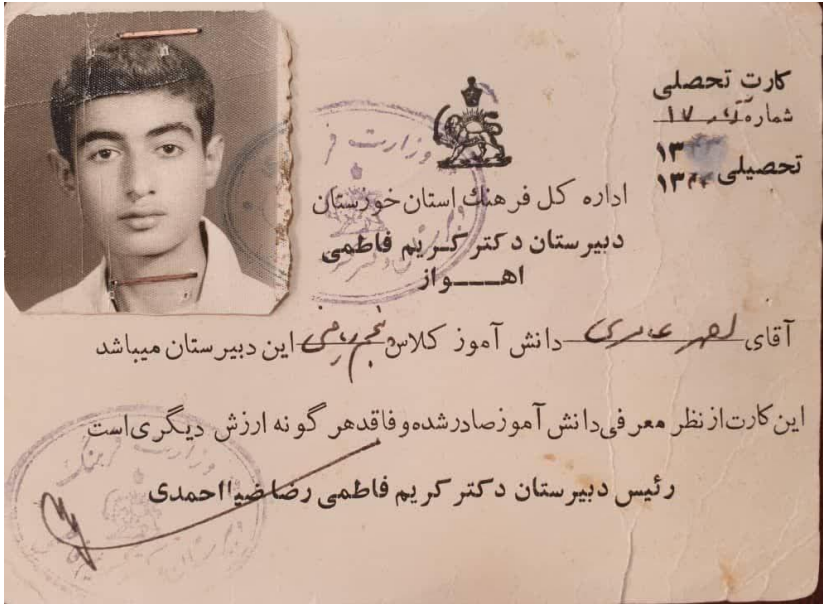 کارت تحصلی
شماره ۱۷
تحصیلی
اداره کل فرهنك استان خوزستان
دبیرستان دکتر کریم فاطمی
اهــواز
آقای دانش آموز کلاس پنجم ریاضی این دبیرستان میباشد
این کارت از نظر معرفی دانش آموز صادر شده و فاقد هر گونه ارزش دیگری است
رئیس دبیرستان دکتر کریم فاطمی رضا ضیا احمدی
وزارت فرهنگ